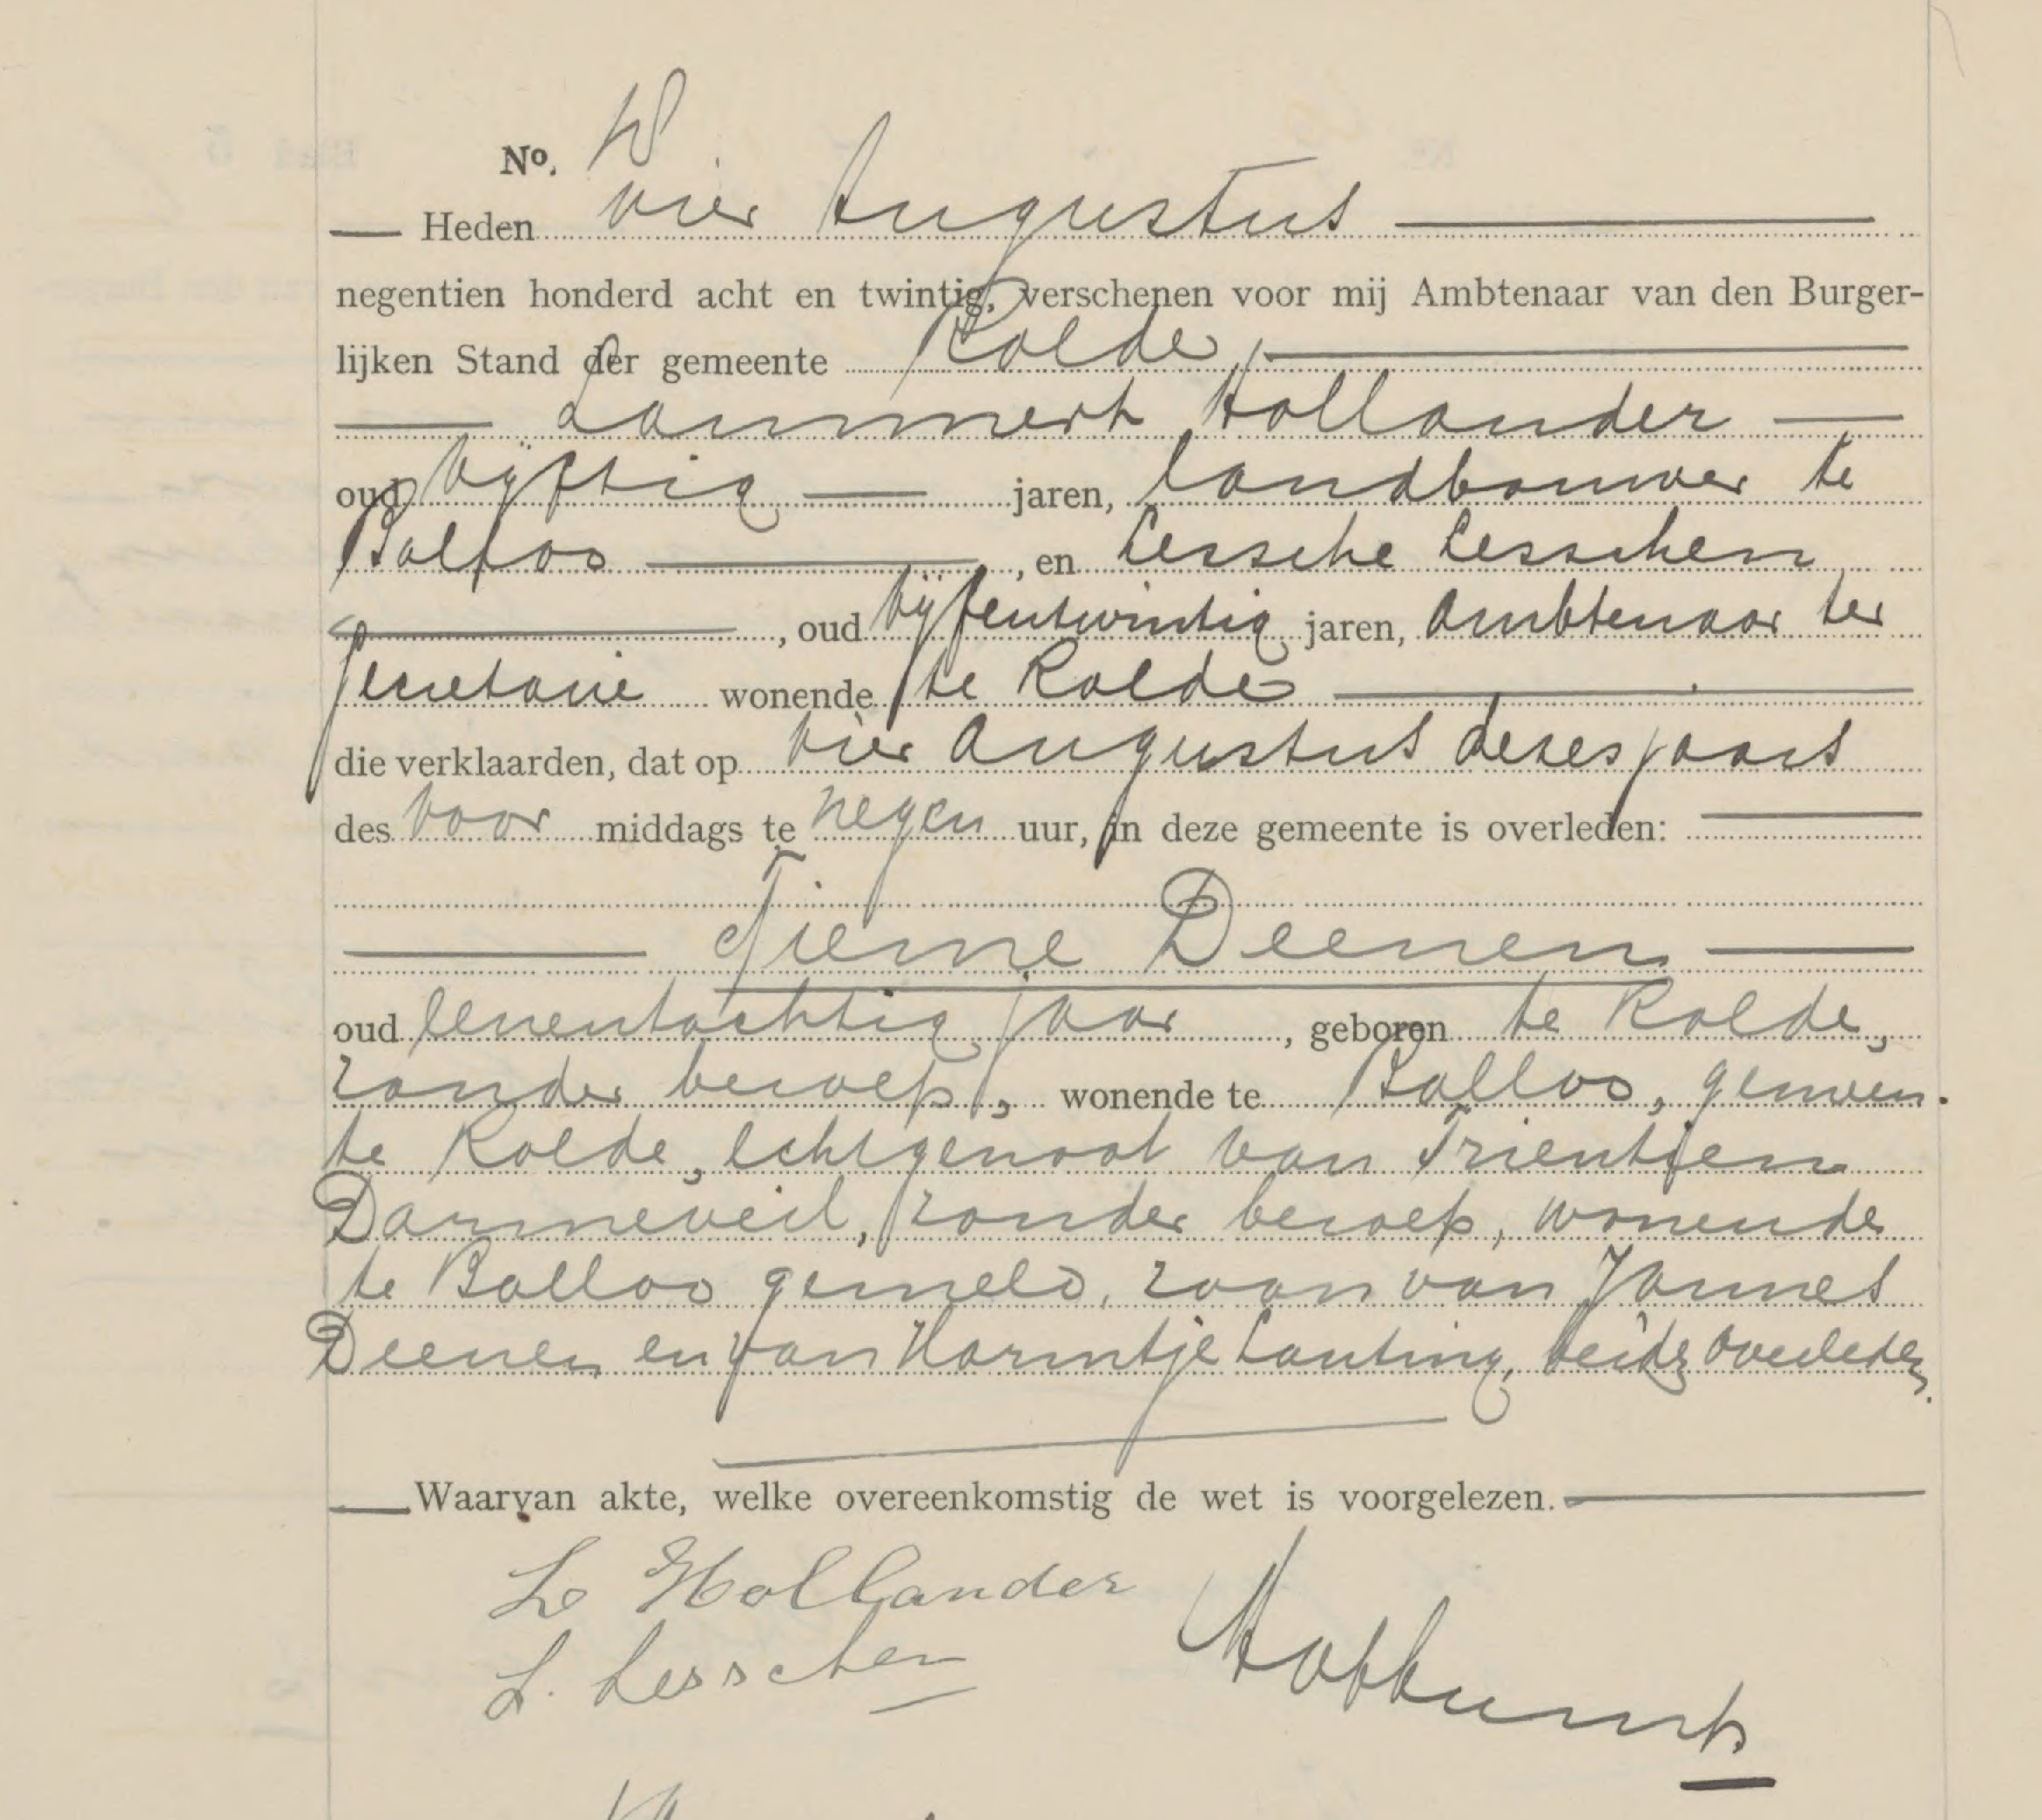 No. 18
Heden vier Augustus
negentien honderd acht en twintig, verschenen voor mij Ambtenaar van den Burger-
lijken Stand der gemeente Rolde,
Lammert Hollander
oud vijftig jaren, landbouwer te
Balloo, en Lessche Lesschen
, oud vijfentwintig jaren, Ambtenaar ter
secretarie wonende te Rolde
die verklaarden, dat op vier Augustus dezes jaars
des voor middags te negen uur, in deze gemeente is overleden:
Tieme Deenen
oud eenentachtig jaar, geboren te Rolde,
zonder beroep, wonende te Balloo, gemeen-
te Rolde, echtgenoot van Trientjen
Darmeveil, zonder beroep, wonende
te Balloo gemeld, zoon van Jannes
Deenen en van Harmtje Lanting, beide overleden.
Waarvan akte, welke overeenkomstig de wet is voorgelezen.
L Hollander
L. Lesschen